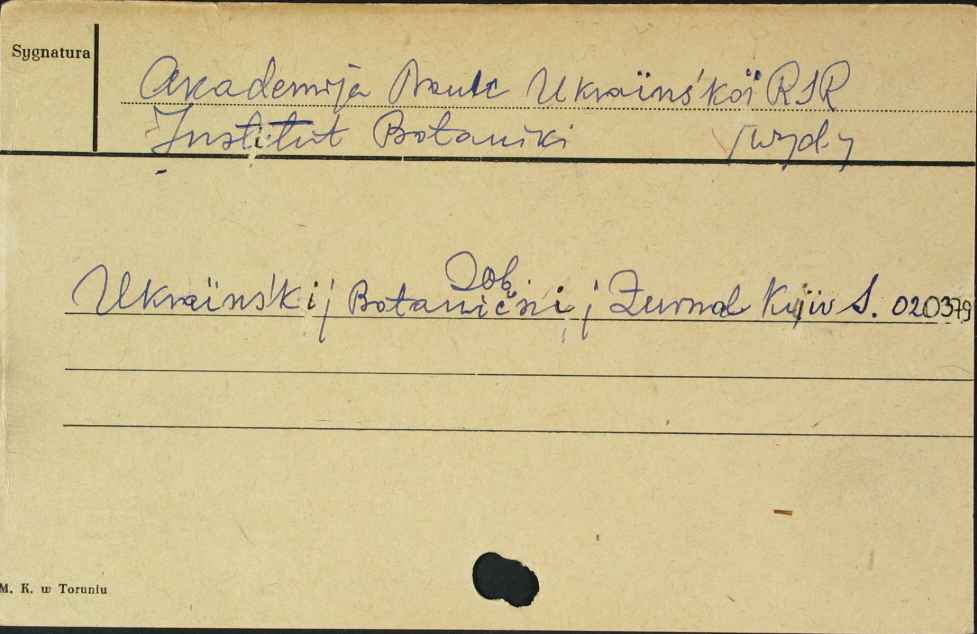 Sygnatura
Akademija Nauk Ukraïns'koï RSR
Institut Botaniki /wyd. /
Zob.
Ukraïns'kij Botaničnij Žurnal Kyjiv S. 020379
M. K. w Toruniu